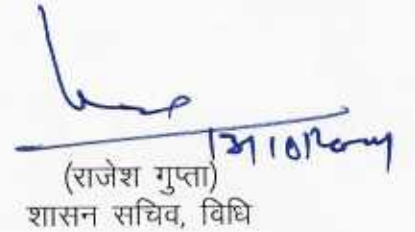 (राजेश गुप्ता)
शासन सचिव, विधि